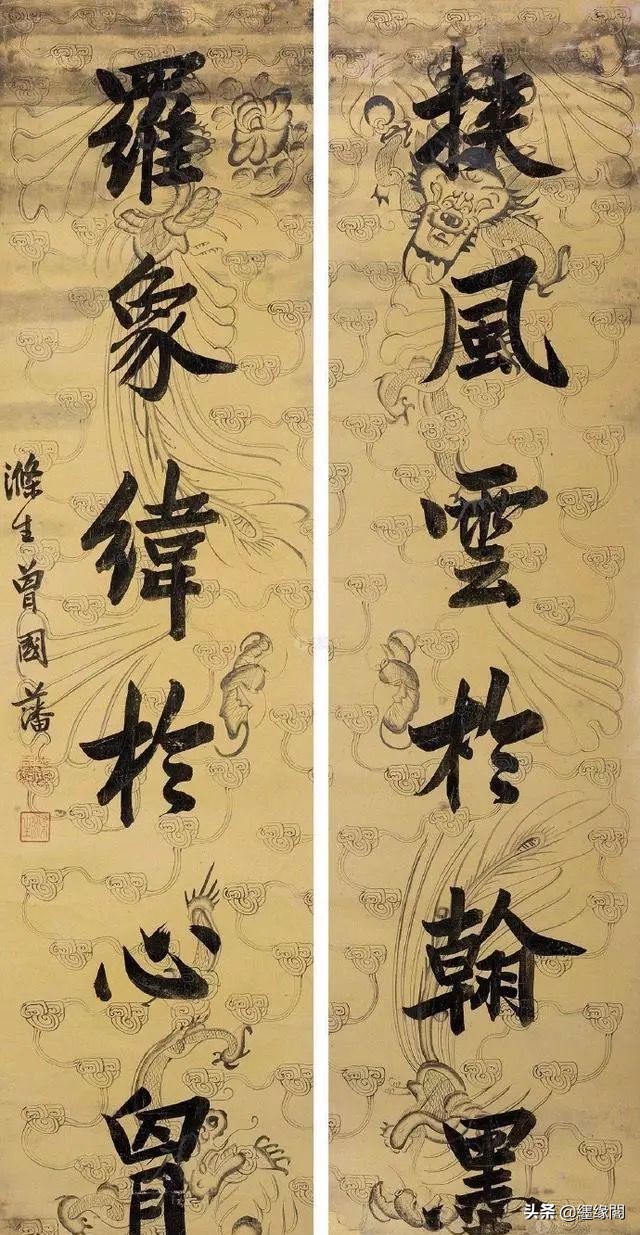 挟風雲於翰墨
羅象緯於心胷
滌生曾國藩
头条 @墨缘閣